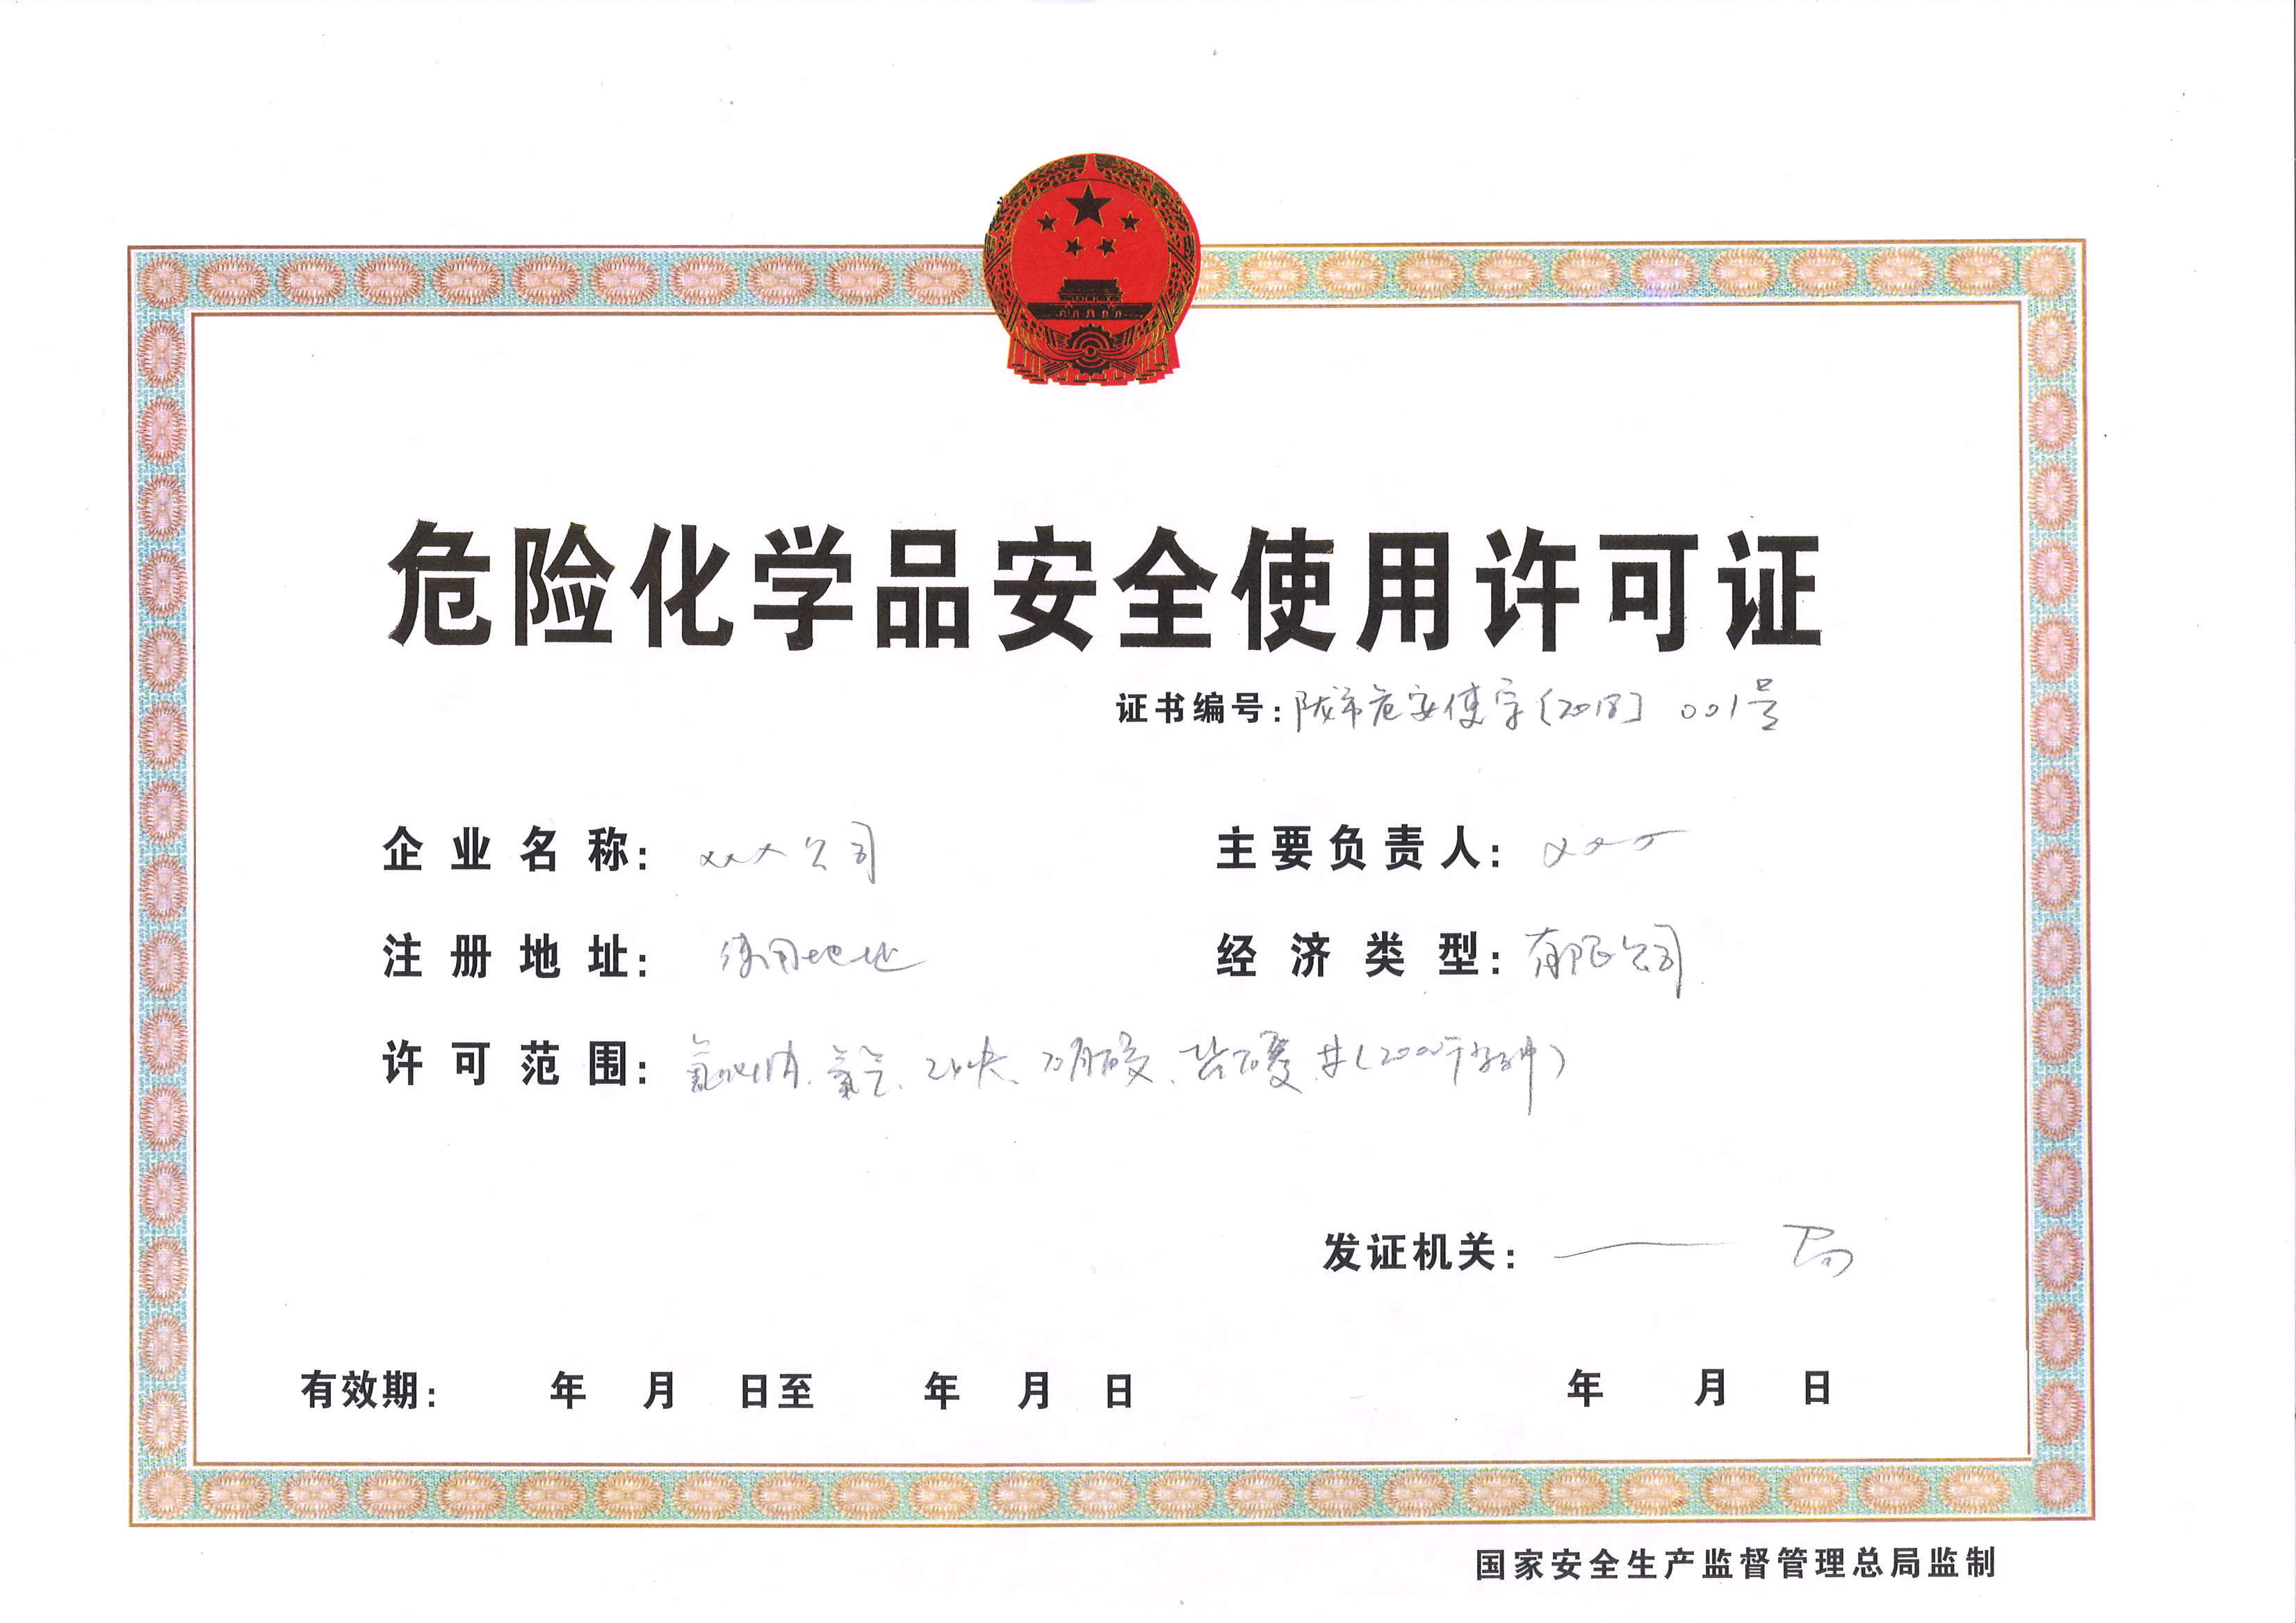 危险化学品安全使用许可证
证书编号：陇市危安使字〔2018〕001号
企业名称：xxx公司 主要负责人：xxx
注册地址：使用地址 经济类型：有限公司
许可范围：氰化钠、氯气、乙炔、
发证机关：— 局
有效期： 年 月 日至 年 月 日 年 月 日
国家安全生产监督管理总局监制